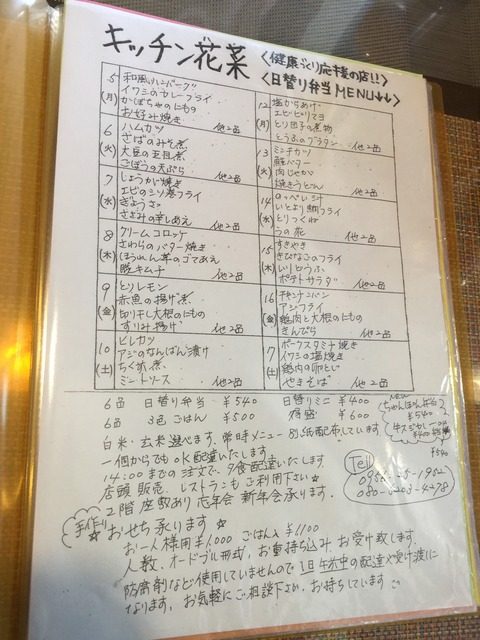 キッチン花菜
〈健康づくり応援の店!!〉
〈日替り弁当MENU↓↓〉
5
(月)
和風ハンバーグ
イワシのカレーフライ
かぼちゃのにもの
お好み焼き
他2品
6
(火)
ハムカツ
さばのみそ煮
大豆の五目煮
ごぼうの天ぷら
他2品
7
(水)
しょうが焼き
エビのシソ巻フライ
ぎょうざ
ささみの辛しあえ
他2品
8
(木)
クリームコロッケ
さわらのバター焼き
ほうれん草のゴマあえ
豚キムチ
他2品
9
(金)
とりレモン
赤魚の揚げ煮
切り干し大根のにもの
すりみ揚げ
他2品
10
(土)
ヒレカツ
アジのなんばん漬け
ちくぜん煮
ミートソース
他2品
12
(月)
塩からあげ
エビとビリマヨ
とり団子の煮物
とうふのグラタン
他2品
13
(火)
ミンチカツ
鮭バター
肉じゃが
焼きうどん
他2品
14
(水)
のっぺい汁
いとより鯛フライ
とりつくね
うの花
他2品
15
(木)
すきやき
きびなごのフライ
いりどうふ
ポテトサラダ
他2品
16
(金)
チキンナンバン
アジフライ
鶏肉と大根のにもの
きんぴら
他2品
17
(土)
ポークスタミナ焼き
イワシの塩焼き
鶏肉の卵とじ
やきそば
他2品
6品 日替り弁当 ¥540 日替りミニ ¥400
6品 3色ごはん ¥500 特盛 ¥600
ちゃんぽん弁当
¥540
白米・玄米選べます。常時メニュー別紙配布しています
一個からでもOK配達いたします
14:00までの注文で、夕食配達いたします
店頭販売、レストランもご利用下さい☆
2階座敷あり忘年会新年会承ります。
Tell
0956-25-1952
手作り
☆おせち承ります☆
お一人様用¥1,000 ごはん入¥1100
人数、オードブル形式、お重持ち込み、お受け致します。
防腐剤など使用していませんので1日午前中の配達や受け渡しに
なります。お気軽にご相談下さい。お待ちしています